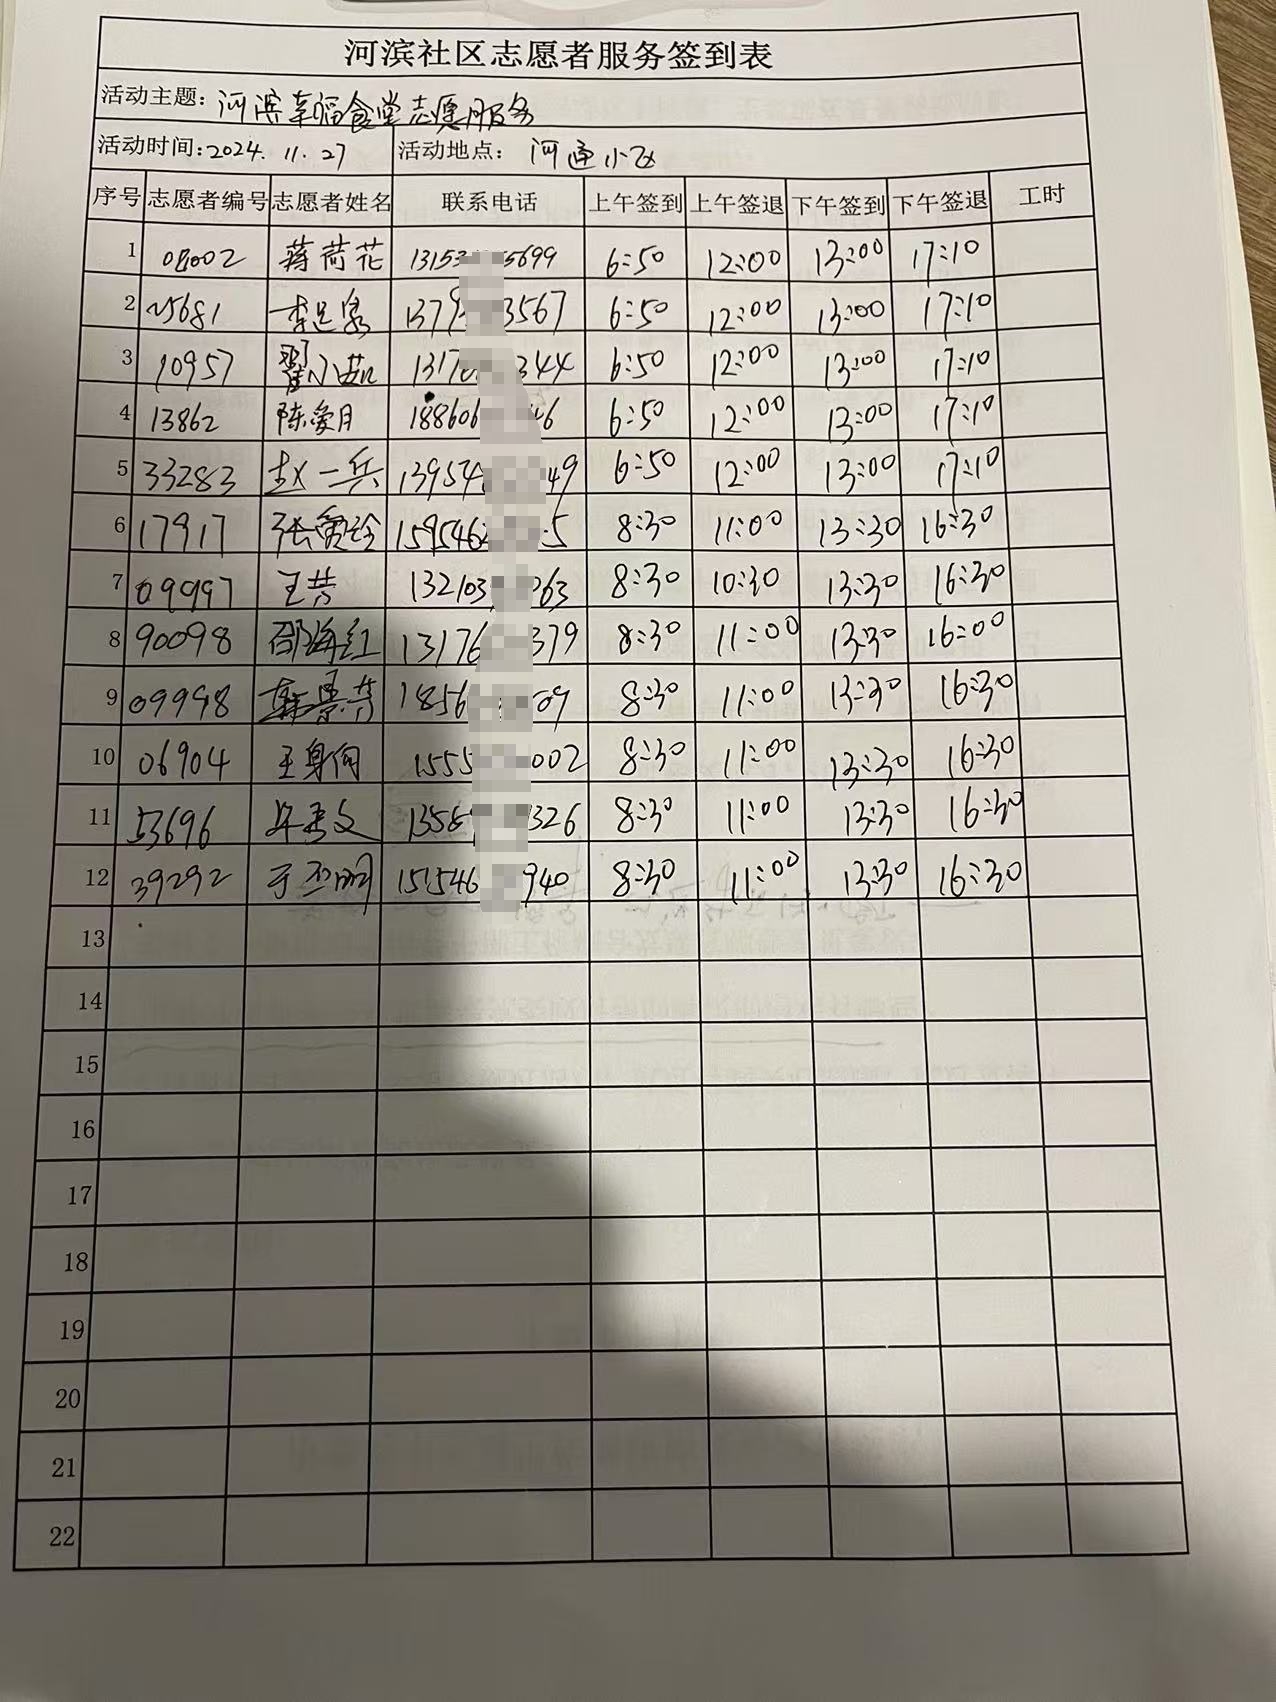 河滨社区志愿者服务签到表
活动主题: 河滨幸福食堂志愿服务
活动时间:2024.11.27 活动地点: 河通小
序号 志愿者编号 志愿者姓名 联系电话 上午签到 上午签退 下午签到 下午签退 工时
1 蒋荷花 13153 5699 6:50 12:00 13:00 17:10
2 25681 1379 3567 6:50 12:00 13:00 17:10
3 10957 翟小茹 1317 344 6:50 12:00 13:00 17:10
4 13862 陈爱月 188606 6 6:50 12:00 13:00 17:10
5 33283 赵一兵 13954 49 6:50 12:00 13:00 17:10
6 17917 张 159546 5 8:30 11:00 13:30 16:30
7 09997 王芸 132103 363 8:30 10:30 13:30 16:30
8 90098 邵海红 13176 379 8:30 11:00 13:30 16:00
9 09998 1856 09 8:30 11:00 13:30 16:30
10 06904 王身向 1555 002 8:30 11:00 13:30 16:30
11 53696 1356 326 8:30 11:00 13:30 16:30
12 39292 于 明 151546 940 8:30 11:00 13:30 16:30
13
14
15
16
17
18
19
20
21
22